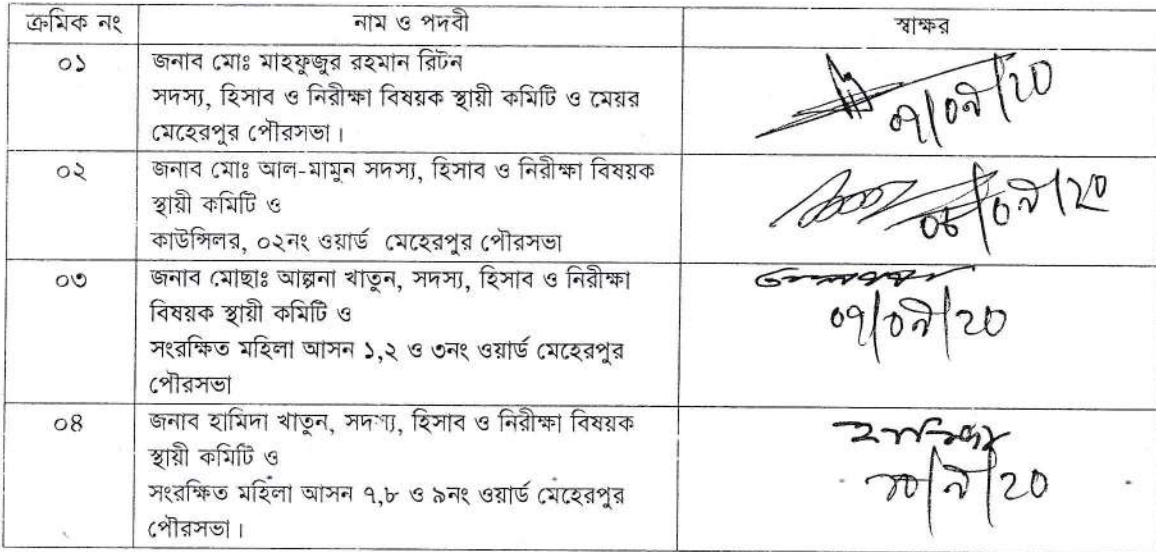 ক্রমিক নং নাম ও পদবী স্বাক্ষর
০১ জনাব মোঃ মাহফুজুর রহমান রিটন
সদস্য, হিসাব ও নিরীক্ষা বিষয়ক স্থায়ী কমিটি ও মেয়র
মেহেরপুর পৌরসভা।
০৭/০৯/২০
০২ জনাব মোঃ আল-মামুন সদস্য, হিসাব ও নিরীক্ষা বিষয়ক
স্থায়ী কমিটি ও
কাউন্সিলর, ০২নং ওয়ার্ড মেহেরপুর পৌরসভা
০৩ জনাব মোছাঃ আল্পনা খাতুন, সদস্য, হিসাব ও নিরীক্ষা
বিষয়ক স্থায়ী কমিটি ও
সংরক্ষিত মহিলা আসন ১,২ ও ৩নং ওয়ার্ড মেহেরপুর
পৌরসভা
০৭/০৯/২০
০৪ জনাব হামিদা খাতুন, সদস্য, হিসাব ও নিরীক্ষা বিষয়ক
স্থায়ী কমিটি ও
সংরক্ষিত মহিলা আসন ৭,৮ ও ৯নং ওয়ার্ড মেহেরপুর
পৌরসভা।
হামিদা